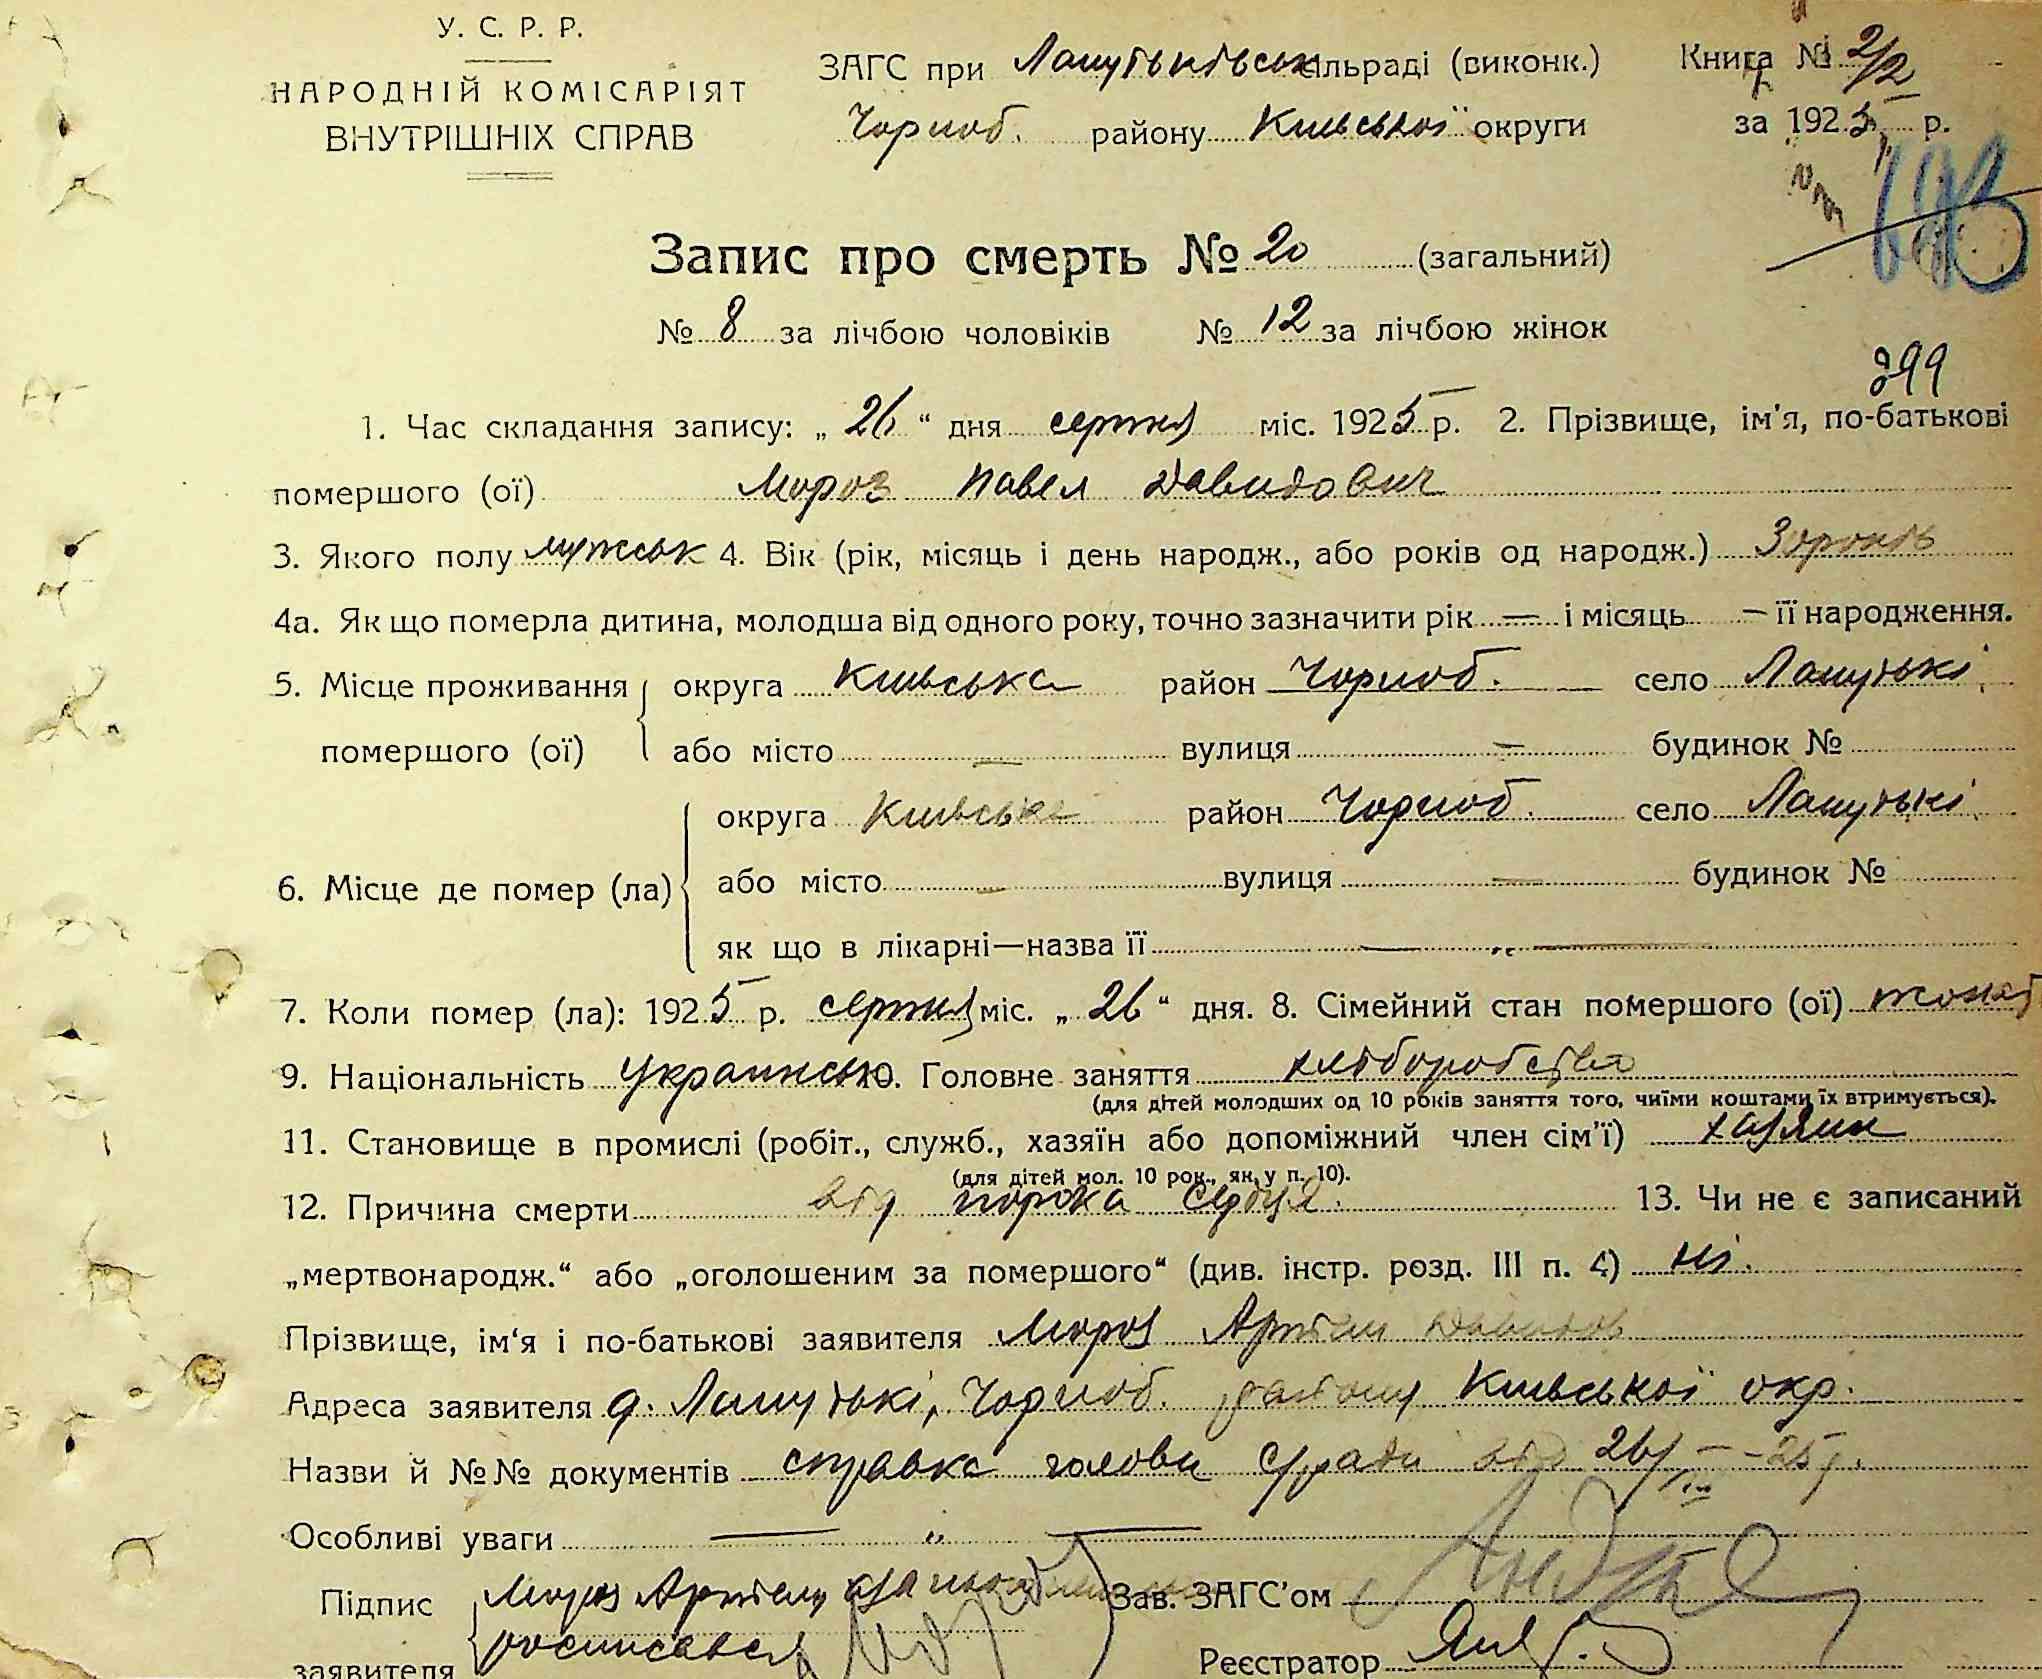 У. С. Р. Р.
НАРОДНІЙ КОМІСАРІЯТ
ВНУТРІШНІХ СПРАВ
ЗАГС при Лапутьківськ сільраді (виконк.)
Чорноб. району Київської округи
Книга № 2/2
за 1925 р.
Запис про смерть № 20 (загальний)
№ 8 за лічбою чоловіків № 12 за лічбою жінок
299
1. Час складання запису: „ 26 “ дня серпня міс. 1925 р. 2. Прізвище, ім'я, по-батькові
помершого (ої) Мороз Павел Давидович
3. Якого полу мужськ 4. Вік (рік, місяць і день народж., або років од народж.) 30 років
4а. Як що померла дитина, молодша від одного року, точно зазначити рік — і місяць — її народження.
5. Місце проживання помершого (ої) округа Київська район Чорноб. село Лапутькі
або місто — вулиця — будинок №
6. Місце де помер (ла) округа Київська район Чорноб. село Лапутькі
або місто — вулиця — будинок №
як що в лікарні—назва її — „ —
7. Коли помер (ла): 1925 р. серпня міс. „ 26 “ дня. 8. Сімейний стан помершого (ої) жонат
9. Національність українськ 10. Головне заняття хліборобство
(для дітей молодших од 10 років заняття того, чиїми коштами їх втримується).
11. Становище в промислі (робіт., служб., хазяїн або допоміжний член сім'ї) хазяин
(для дітей мол. 10 рок., як у п. 10).
12. Причина смерти від порока сердця. 13. Чи не є записаний
„мертвонародж.“ або „оголошеним за помершого“ (див. інстр. розд. III п. 4) ні.
Прізвище, ім'я і по-батькові заявителя Мороз Артем Давидов
Адреса заявителя д. Лапутькі, Чорноб. району Київської окр.
Назви й №№ документів справка голови с/ради від 26/VIII-25 р.
Особливі уваги — „ —
Підпис заявителя Мороз Артем, за
росписався
Зав. ЗАГС'ом
Реєстратор